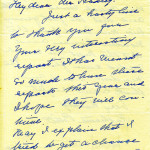 Just a hasty line
to thank you for
your very interesting
report. It has meant
so much to have these
reports this year and
I hope they will con-
tinue.
May I explain that I
tried to get a chance